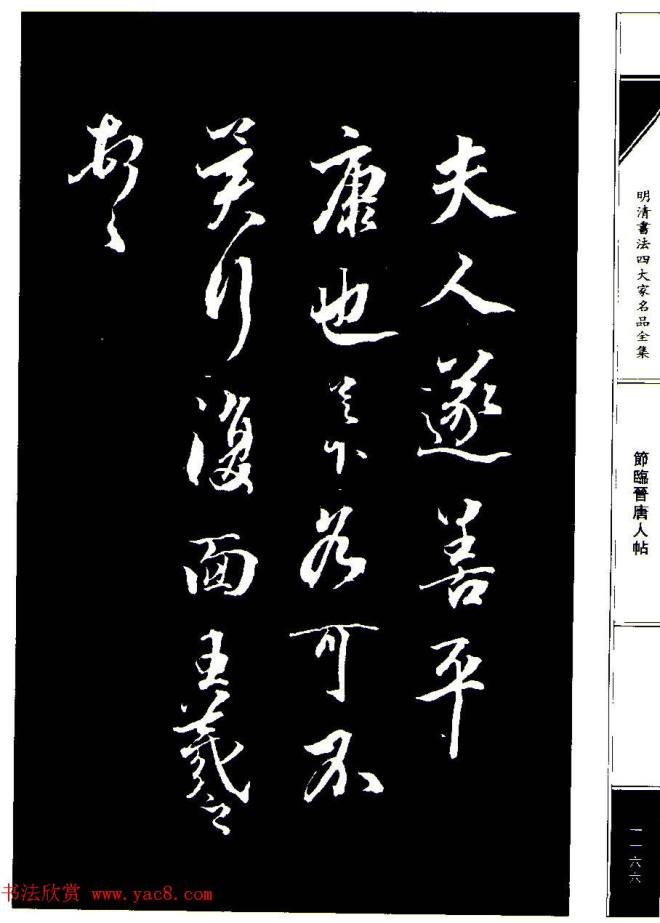 明清書法四大家名品全集
節臨晉唐人帖
一一六六
夫人遂善平
康也足下各可不
冀行復面王羲之
頓首
书法欣赏 www.yac8.com